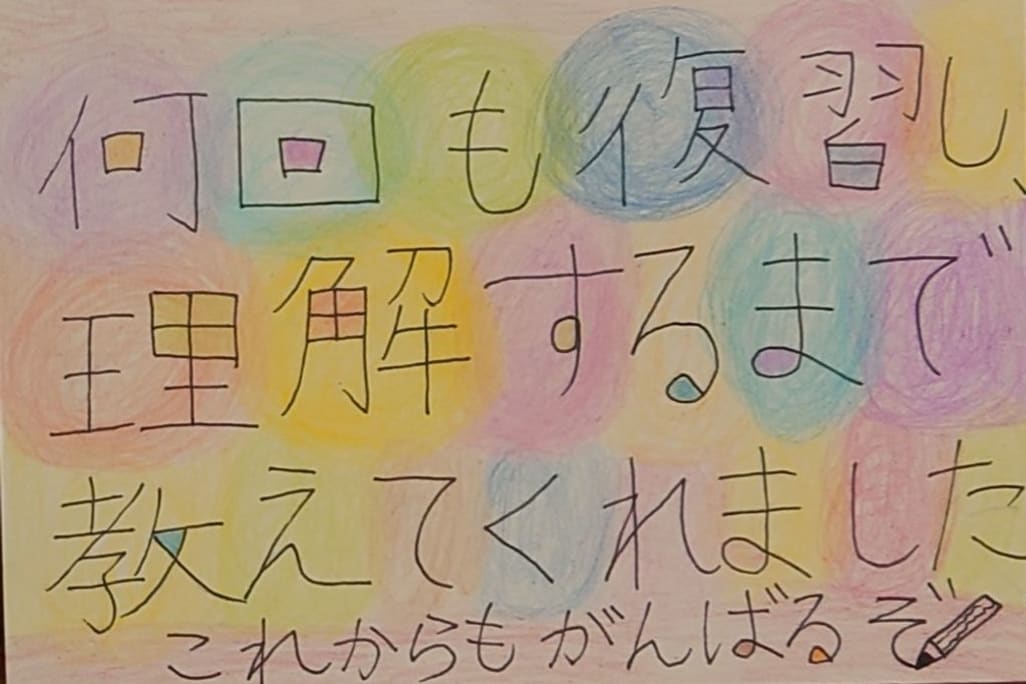 何回も復習し、
理解するまで
教えてくれました
これからもがんばるぞ